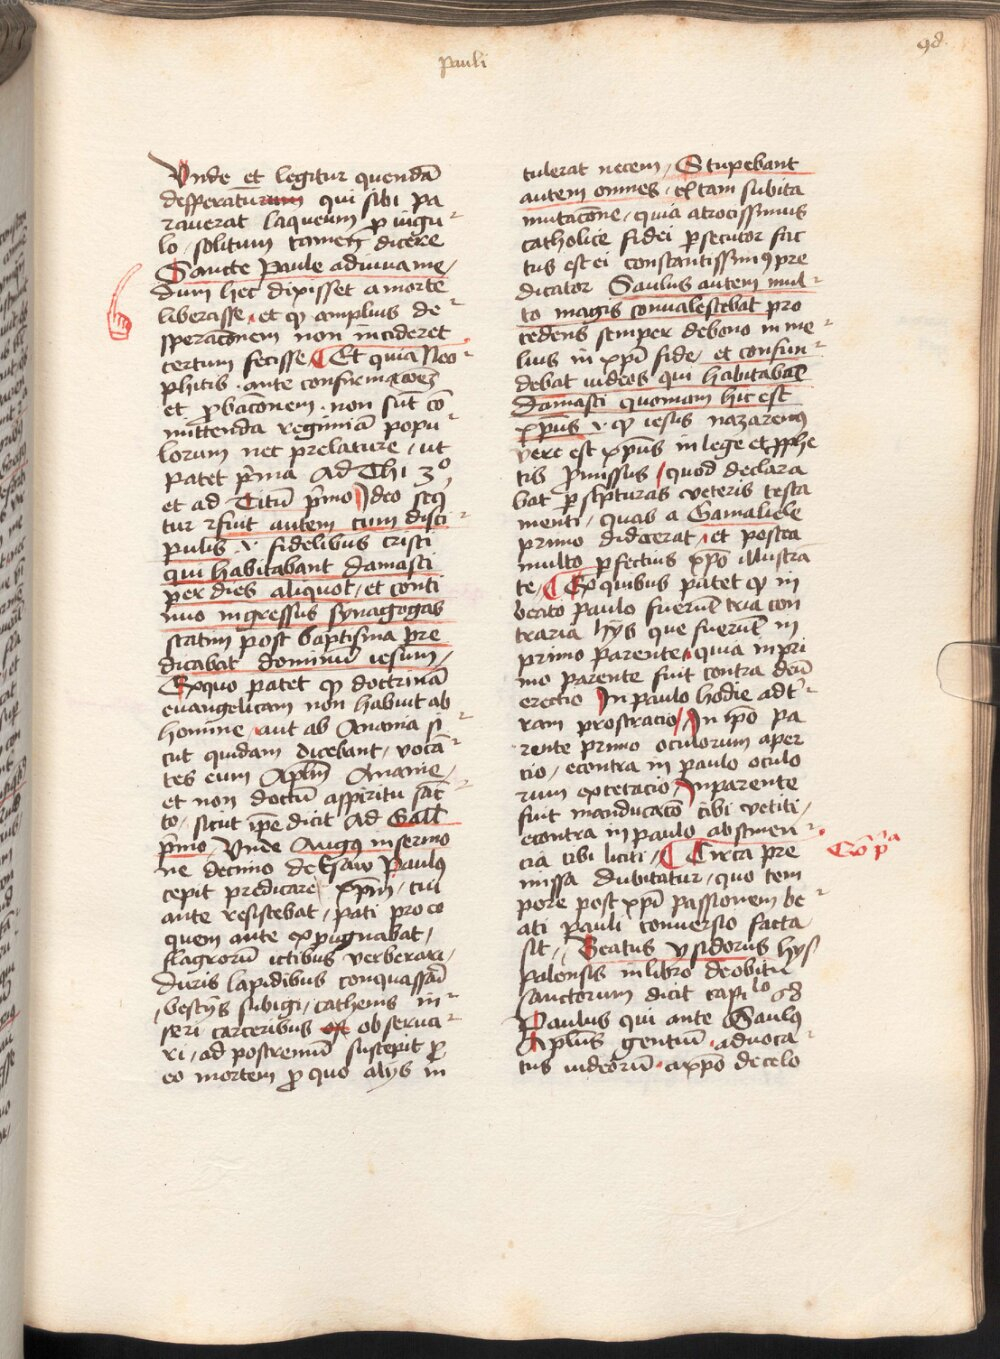 Pauli
98
Unde et legitur quendā
desperaturum qui sibi pa
raverat laqueum p iugu
lo / solitum tamen dicere
Sancte Paule adiuva me /
dum hec dixisset a morte
liberasse et qp amplius de
speracōnem non incideret
certum fecisse Et quia Neo
phitis ante confirmacōez
et pbacōnem non sūt cō
mittenda regimīa popu
lorum nec prelature / ut
patet prima Ad Thi 3º
et ad Titū prmo Ideo seq
tur Fuit autem cum disci
pulis v fidelibus cristi
qui habitabant damasci
per dies aliquot / et conti
nuo ingressus synagogas
statim post baptisma pre
dicabat dominū iesum /
Ex quo patet qp doctrinā
euangelicam non habuit ab
homine / aut ab Anania si
cut quidam dicebant / vocā
tes eum Aplm Ananie /
et non doctū a spiritu sāc
to / sicut ipe dicit Ad Gall
prmo / Unde Augs in sermo
ne decimo de Esau Paulus
cepit predicare xpm / cui
ante resistebat / pati pro eo
quem ante expugnabat /
flagrorū ictibus verberari /
duris lapidibus conquassari
bestijs subigi / cathenis in
seri carceribus observa
ri / ad postremū suscepit p
eo mortem p quo alijs in
tulerat necem / Stupebant
autem omnes / ex tam subita
mutacōne / quia atrocissimus
catholice fidei psecutor fac
tus est ei constantissimus pre
dicator Saulus autem mul
to magis convalescebat pro
cedens semper de bono in me
lius in xpi fide / et confun
debat iudeos qui habitabāt
damasci quoniam hic est
xpus v qp iesus nazarenus
vere est xpus in lege et pphe
tis pmissus / quod declara
bat p scripturas veteris testa
menti / quas a Gamaliele
primo didicerat / et postea
multo pfectius xpo illustra
te / Ex quibus patet qp in
beato Paulo fuerūt tria con
traria hijs que fuerūt in
primo parente / quia in pri
mo parente fuit contra deū
erectio In paulo hodie ad t
ram prostracio / In ipo pa
rente primo oculorum aper
cio / econtra in paulo oculo
rum excecacio In parente
fuit manducacō cibi vetiti /
econtra in paulo abstinen
cia cibi liciti / Circa pre
missa dubitatur / quo tem
pore post xpi passionem be
ati pauli conversio facta
sit / Beatus Ysidorus hys
palensis in libro de obitu
sanctorum dicit capilo 68
Paulus qui ante Saulus
Aplus gentiū advoca
tus iudeorū a xpo de celo